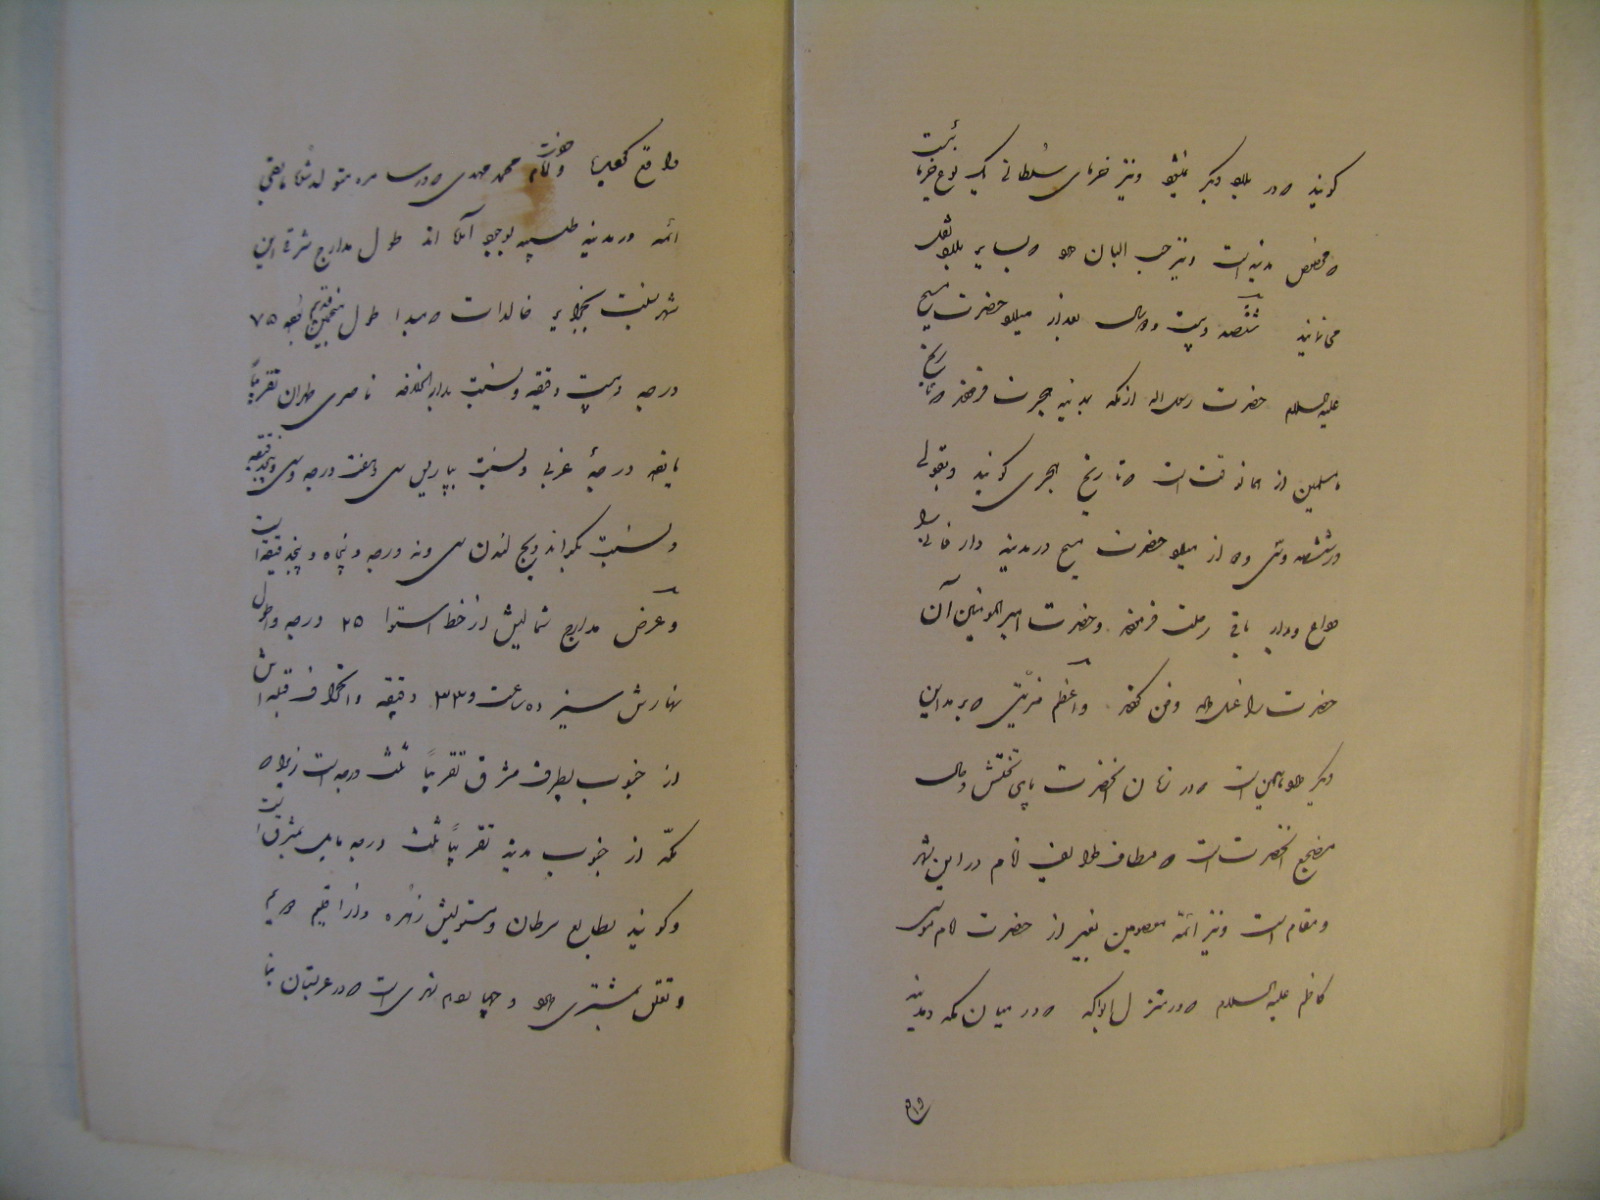 گویند و در بلاد دیگر نمیشود و نیز خرمای سلطانی که نوع خرما است
مخصوص مدینه است و نیز حب البان که بسایر بلاد نقل
می نمایند ششصد و بیست و دو سال بعد از میلاد حضرت مسیح
علیه السلام حضرت رسول الله از مکه بمدینه هجرت فرمودند و تاریخ
مسلمین از همانوقت است و تاریخ هجری گویند و بقولی
در ششصد و سی و دو از میلاد حضرت مسیح در مدینه دار فانی را
وداع و بدار باقی رحلت فرموده و حضرت امیرالمومنین آن
حضرت را غسل داده و دفن کردند و اعظم مزیتی که بر مداین
دیگر دارد همین است که در زمان آنحضرت پای تختش و حال
مضجع آنحضرت است و مطاف طوایف انام در این شهر
و مقام است و نیز ائمه معصومین بغیر از حضرت امام موسی
کاظم علیه السلام که در منزل ابوا که در میان مکه و مدینه
واقع و حضرت امام محمد مهدی که در سامره متولد شد مابقی
ائمه در مدینه طیبه بوجود آمده اند طول مدارج شرقی این
شهر بنسبت بجزایر خالدات که مبدا طول منجمین قدیم بود ۷۵
درجه و بیست دقیقه و نسبت بدار الخلافه ناصری طهران تقریباً
درجهٔ غربی و نسبت بپاریس سی و هفت درجه و سی و پنج دقیقه
و نسبت بگراندویچ لندن سی و نه درجه و پنجاه و پنج دقیقه است
و عرض مدارج شمالیش از خط استوا ۲۵ درجه و اطول
نهارش سیزده ساعت و ۳۳ دقیقه و انحراف قبله اش
از جنوب بطرف مشرق تقریباً ثلث درجه است زیرا که
مکّه از جنوب مدینه تقریباً ثلث درجه مایل بمشرق است
و گویند بطالع سرطان و مستولیش زهره و از اقلیم دویم
و تعلق بمشتری دارد و شهری است که در عربستان بنا